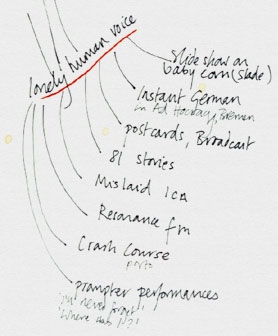 lonely human voice
slide show on
baby corn (slade)
Instant German
postcards, Broadcast
81 stories
Mislaid ICA
Resonance fm
Crash Course
prompter performances
"I'll never forget"